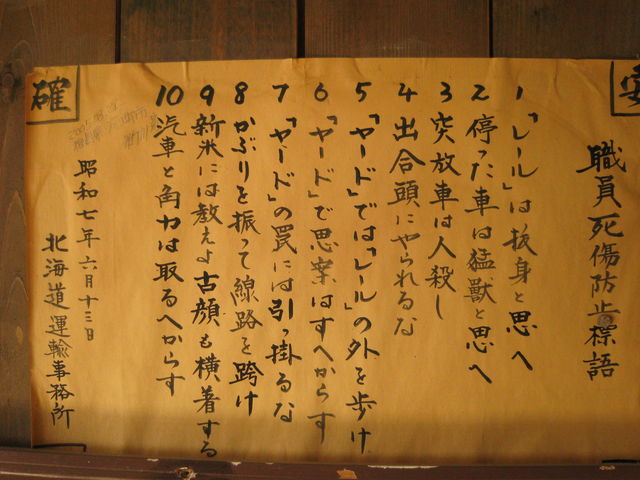 安
職員死傷防止標語
1 「レール」は抜身と思へ
2 停った車は猛獣と思へ
3 突放車は人殺し
4 出合頭にやられるな
5 「ヤード」では「レール」の外を歩け
6 「ヤード」で思案はすへからす
7 「ヤード」の罠には引っ掛るな
8 かぶりを振って線路を跨け
9 新米には教えよ古顔も横着する
10 汽車と角力は取るへからす
昭和七年六月十三日
北海道運輸事務所
確